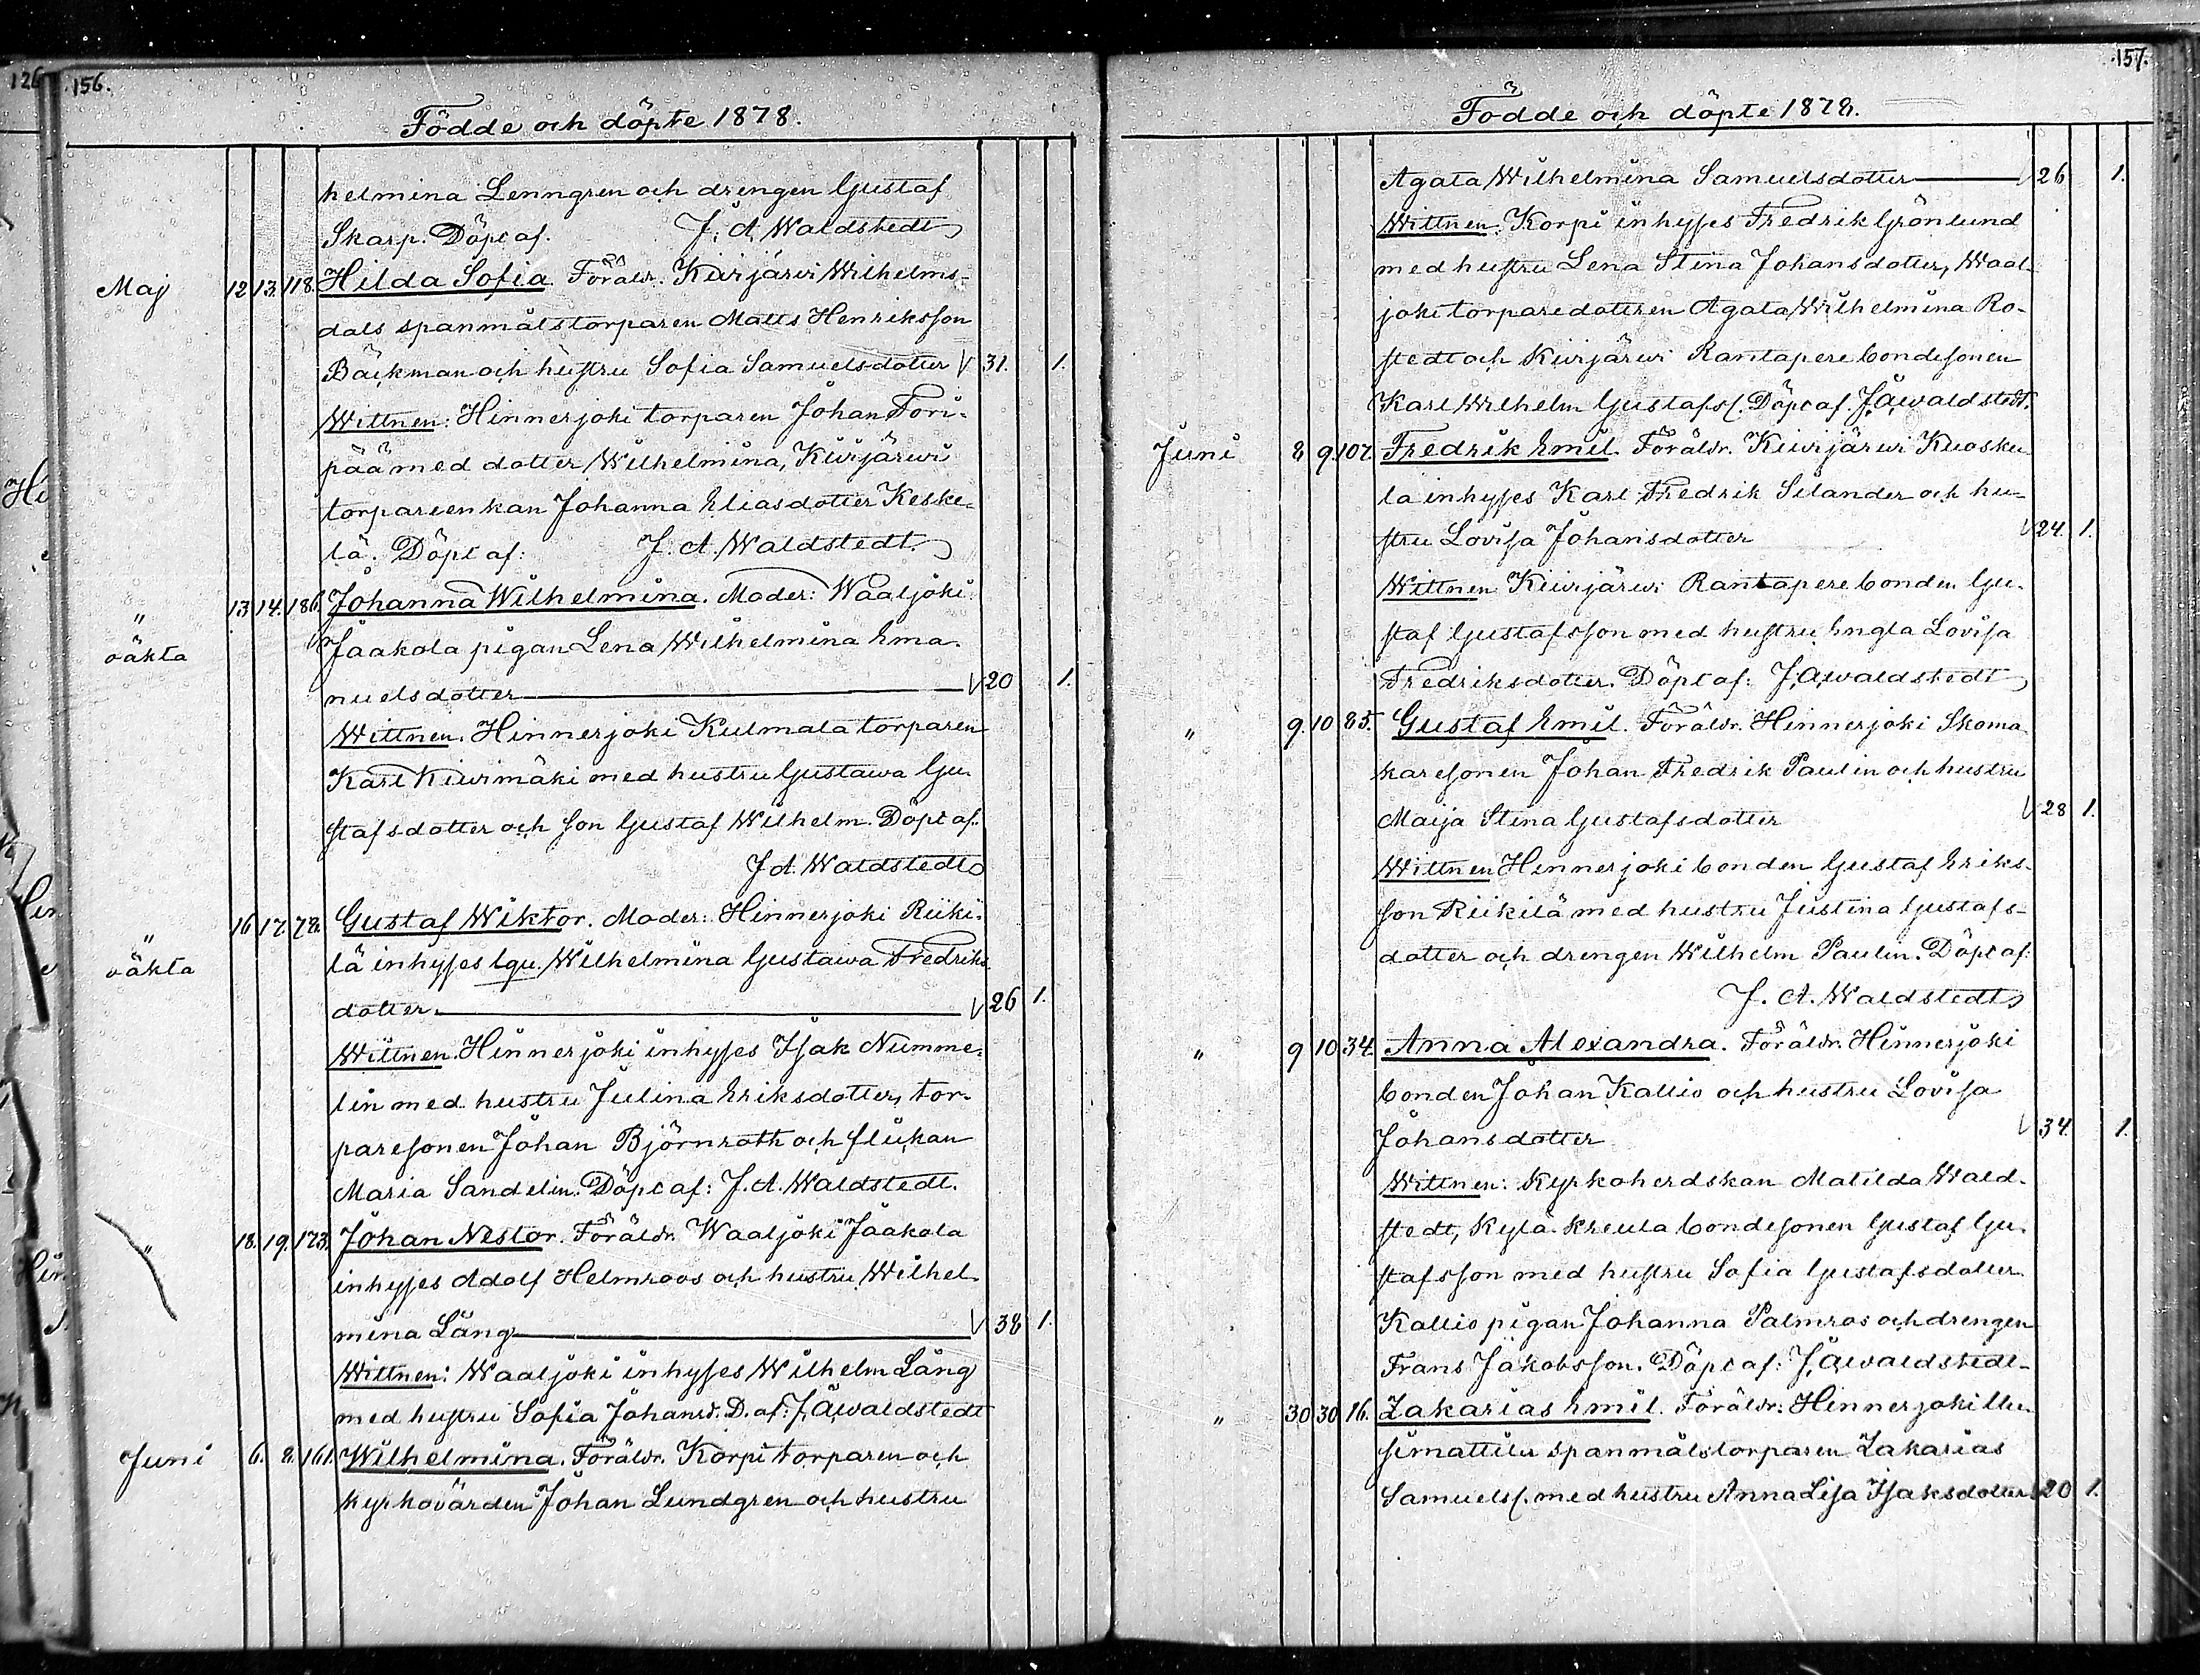 126 156.
Födde och döpte 1878.
helmina Lenngren och drengen Gustaf
Skarp. Döpt af. J. A. Waldstedt
Maj 12 13. 118. Hilda Sofia. Föräldr. Kivijärvi Wilhelms-
dals spanmålstorparen Matts Henriksson
Bäckman och hustru Sofia Samuelsdotter V 31. 1.
Wittnen: Hinnerjoki torparen Johan Tori-
pää med dotter Wilhelmina, Kivijärvi
torpareenkan Johanna Eliasdotter Keske-
lä. Döpt af: J. A. Waldstedt.
" 13 14. 186. Johanna Wilhelmina. Moder: Waaljoki
oäkta Jaakola pigan Lena Wilhelmina Ema-
nuelsdotter V 20 1.
Wittnen. Hinnerjoki Kulmala torparen
Karl Kiwimäki med hustru Gustawa Gu-
stafsdotter och son Gustaf Wilhelm. Döpt af:
J. A. Waldstedt
" 16 17. 78. Gustaf Wiktor. Moder: Hinnerjoki Riiki-
oäkta lä inhyses lqu. Wilhelmina Gustawa Fredriks-
dotter. V 26 1.
Wittnen. Hinnerjoki inhyses Isak Numme-
lin med hustru Julina Eriksdotter, tor-
paresonen Johan Björnroth och flickan
Maria Sandelin. Döpt af: J. A. Waldstedt.
" 18. 19. 173. Johan Nestor. Föräldr. Waaljoki Jaakola
inhyses Adolf Helmroos och hustru Wilhel-
mina Lång V 38 1.
Wittnen: Waaljoki inhyses Wilhelm Lång
med hustru Sofia Johansd. D. af: J. A. Waldstedt
Juni 6. 8. 161. Wilhelmina. Föräldr. Korpi torparen och
kyrkovärden Johan Lundgren och hustru
157.
Födde och döpte 1878.
Agata Wilhelmina Samuelsdotter V 26 1.
Wittnen. Korpi inhyses Fredrik Grönlund
med hustru Lena Stina Johansdotter, Waal-
joki torparedottren Agata Wilhelmina Ro-
stedt och Kivijärvi Rantapere bondesonen
Karl Wilhelm Gustafss. Döpt af. J. A. Waldstedt.
Juni 8 9. 107. Fredrik Emil. Föräldr. Kiwijärwi Kuosku-
la inhyses Karl Fredrik Silander och hu-
stru Lovisa Johansdotter V 24. 1.
Wittnen Kiwijärwi Rantapere bonden Gu-
staf Gustafsson med hustru Engla Lovisa
Fredriksdotter. Döpt af: J. A. Waldstedt
" 9. 10 85. Gustaf Emil. Föräldr. Hinnerjoki Skoma-
karesonen Johan Fredrik Paulin och hustru
Maija Stina Gustafsdotter V 28 1.
Wittnen Hinnerjoki bonden Gustaf Eriks-
son Riikilä med hustru Justina Gustafs-
dotter och drengen Wilhelm Paulin. Döpt af:
J. A. Waldstedt
" 9 10 34. Anna Alexandra. Föräldr. Hinnerjoki
bonden Johan Kallio och hustru Lovisa
Johansdotter V 34. 1.
Wittnen: Kyrkoherdskan Matilda Wald-
stedt, Kylä-Kreula bondesonen Gustaf Gu-
stafsson med hustru Sofia Gustafsdotter
Kallio pigan Johanna Palmros och drengen
Frans Jakobsson. Döpt af: J. A. Waldstedt-
" 30 30 16. Zakarias Emil. Föräldr: Hinnerjoki Uu-
simattila spanmålstorparen Zakarias
Samuelss. med hustru Anna Lisa Isaksdotter 20 1.